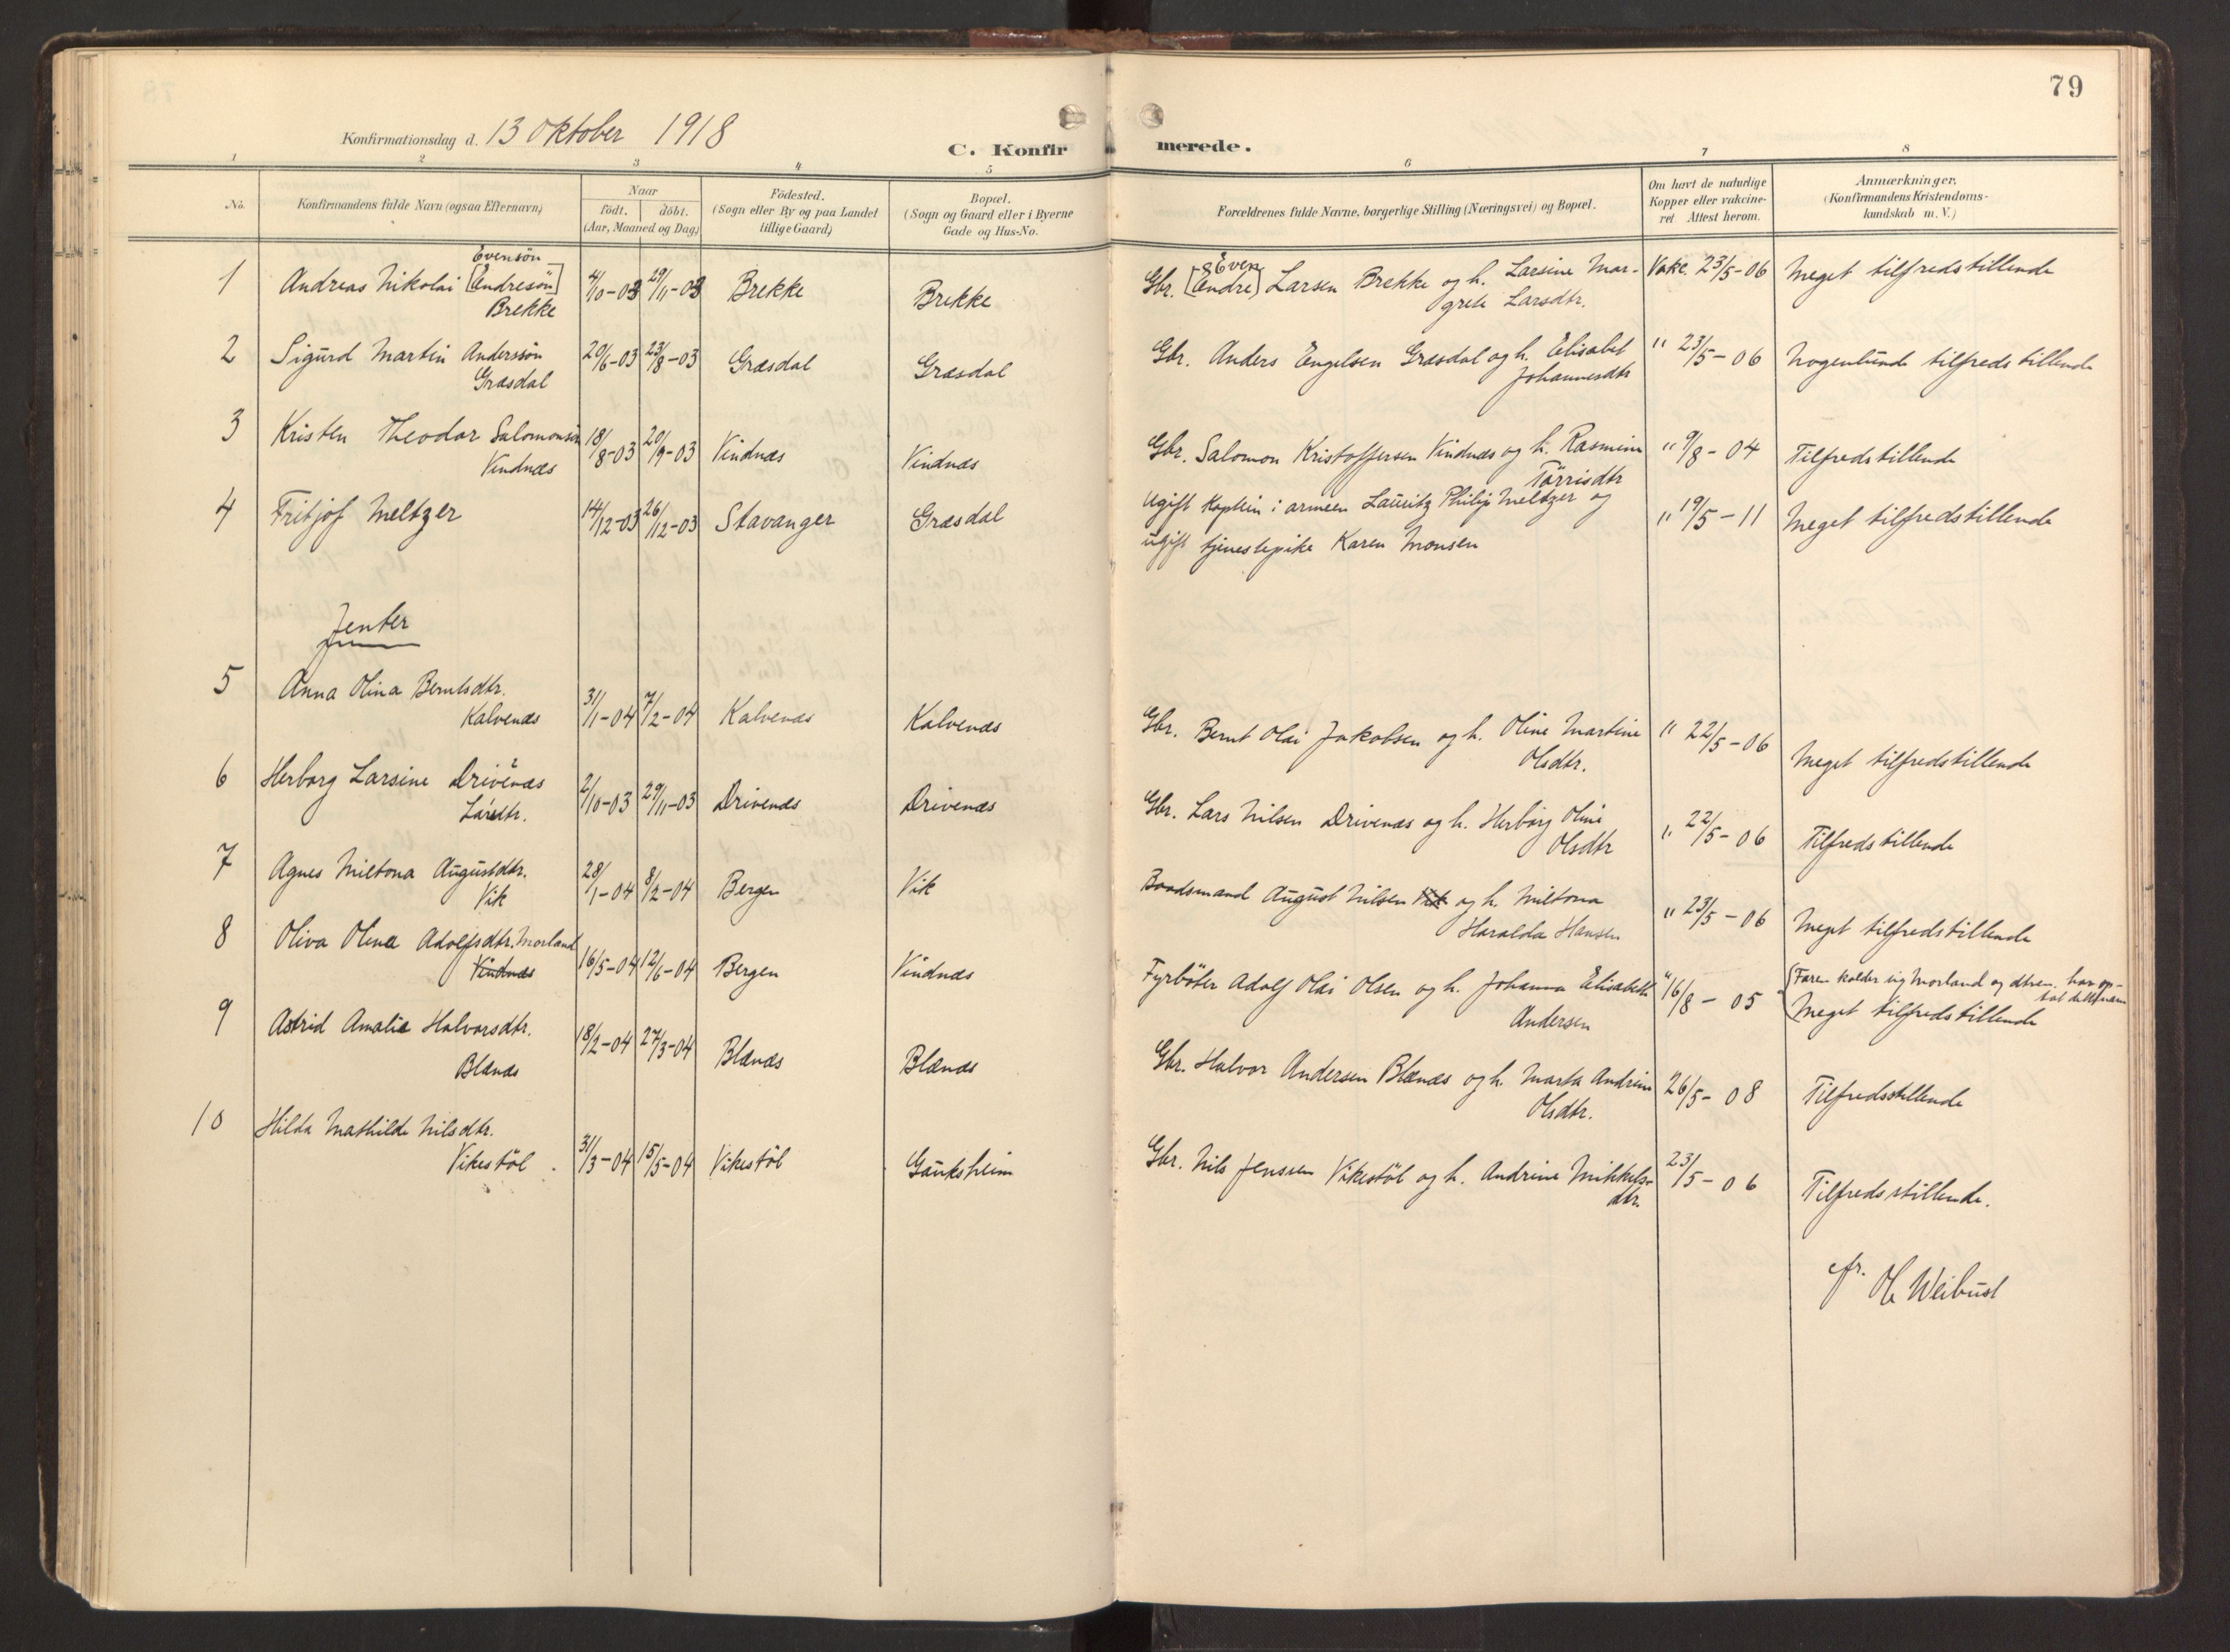 79
Konfirmationsdag d. 13 Oktober 1918
C. Konfirmerede.
1 2 3 4 5 6 7 8
No.
Konfirmandens fulde Navn (ogsaa Efternavn)
Naar
födt. döbt.
(Aar, Maaned og Dag)
Födested.
(Sogn eller By og paa Landet
tillige Gaard)
Bopæl.
(Sogn og Gaard eller i Byerne
Gade og Hus-No.
Forældrenes fulde Navne, borgerlige Stilling (Næringsvei) og Bopæl.
Om havt de naturlige
Kopper eller vakcine-
ret. Attest herom.
Anmærkninger.
(Konfirmandens Kristendoms-
kundskab m. V.)
Evensön
1 Andreas Nikolai [Endresön] 4/10-03 29/11-03 Brekke Brekke Gbr. [Endre] Even Larsen Brekke og h. Larsine Mar- Vakc. 23/5-06 Meget tilfredstillende
Brekke grete Larsdtr.
2 Sigurd Martin Anderssön 20/6-03 23/8-03 Græsdal Græsdal Gbr. Anders Engelsen Græsdal og h. Elisabet " 23/5-06 Nogenlunde tilfredstillende
Græsdal Johannesdtr
3 Kristen Theodor Salomonsön 18/8-03 20/9-03 Vindnæs Vindnæs Gbr. Salomon Kristoffersen Vindnæs og h. Rasmine " 9/8-04 Tilfredstillende
Vindnæs Törrisdtr
4 Fritjof Meltzer 14/12-03 26/12-03 Stavanger Græsdal Ugift kaptein i armeen Lauritz Philip Meltzer og " 19/5-11 Meget tilfredstillende
ugift tjenestepike Karen Monsen
Jenter
5 Anna Olina Berntsdtr. 31/1-04 7/2-04 Kalvenæs Kalvenæs Gbr. Bernt Olai Jakobsen og h. Oline Martine " 22/5-06 Meget tilfredstillende
Kalvenæs Olsdtr.
6 Herborg Larsine Drivenæs 2/10-03 29/11-03 Drivenæs Drivenæs Gbr. Lars Nilsen Drivenæs og h. Herborg Oline " 22/5-06 Tilfredstillende
Larsdtr. Olsdtr
7 Agnes Miltona Augustdtr. 28/1-04 8/2-04 Bergen Vik Baadsmand August Nilsen Vik og h. Miltona " 23/5-06 Meget tilfredstillende
Vik Haralda Hansen
8 Oliva Olina Adolfsdtr. Morland 16/5-04 12/6-04 Bergen Vindnæs Fyrböter Adolf Olai Olsen og h. Johanna Elisabeth " 16/8-05 Faren kalder sig Morland og dtren. har op-
tat dette navn
Vindnæs Andersen Meget tilfredstillende
9 Astrid Amalie Halvorsdtr. 18/2-04 27/3-04 Blænæs Blænæs Gbr. Halvor Andersen Blænæs og h. Marta Andrine 26/5-08 Tilfredsstillende
Blænæs Olsdtr.
10 Hilda Mathilde Nilsdtr. 31/3-04 15/5-04 Vikestöl Gauksheim Gbr. Nils Jenssen Vikestöl og h. Andrine Mikkels- 23/5-06 Tilfredsstillende.
Vikestöl dtr.
Weibust